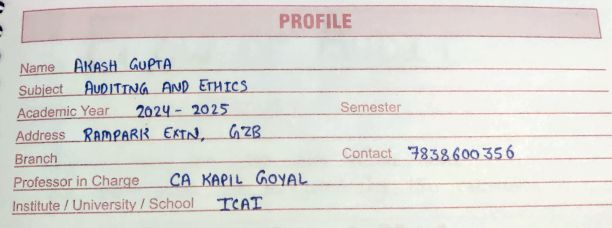 PROFILE
Name AKASH GUPTA
Subject AUDITING AND ETHICS
Academic Year 2024 - 2025 Semester
Address RAMPARK EXTN, GZB
Branch Contact 7838600356
Professor in Charge CA KAPIL GOYAL
Institute / University / School ICAI